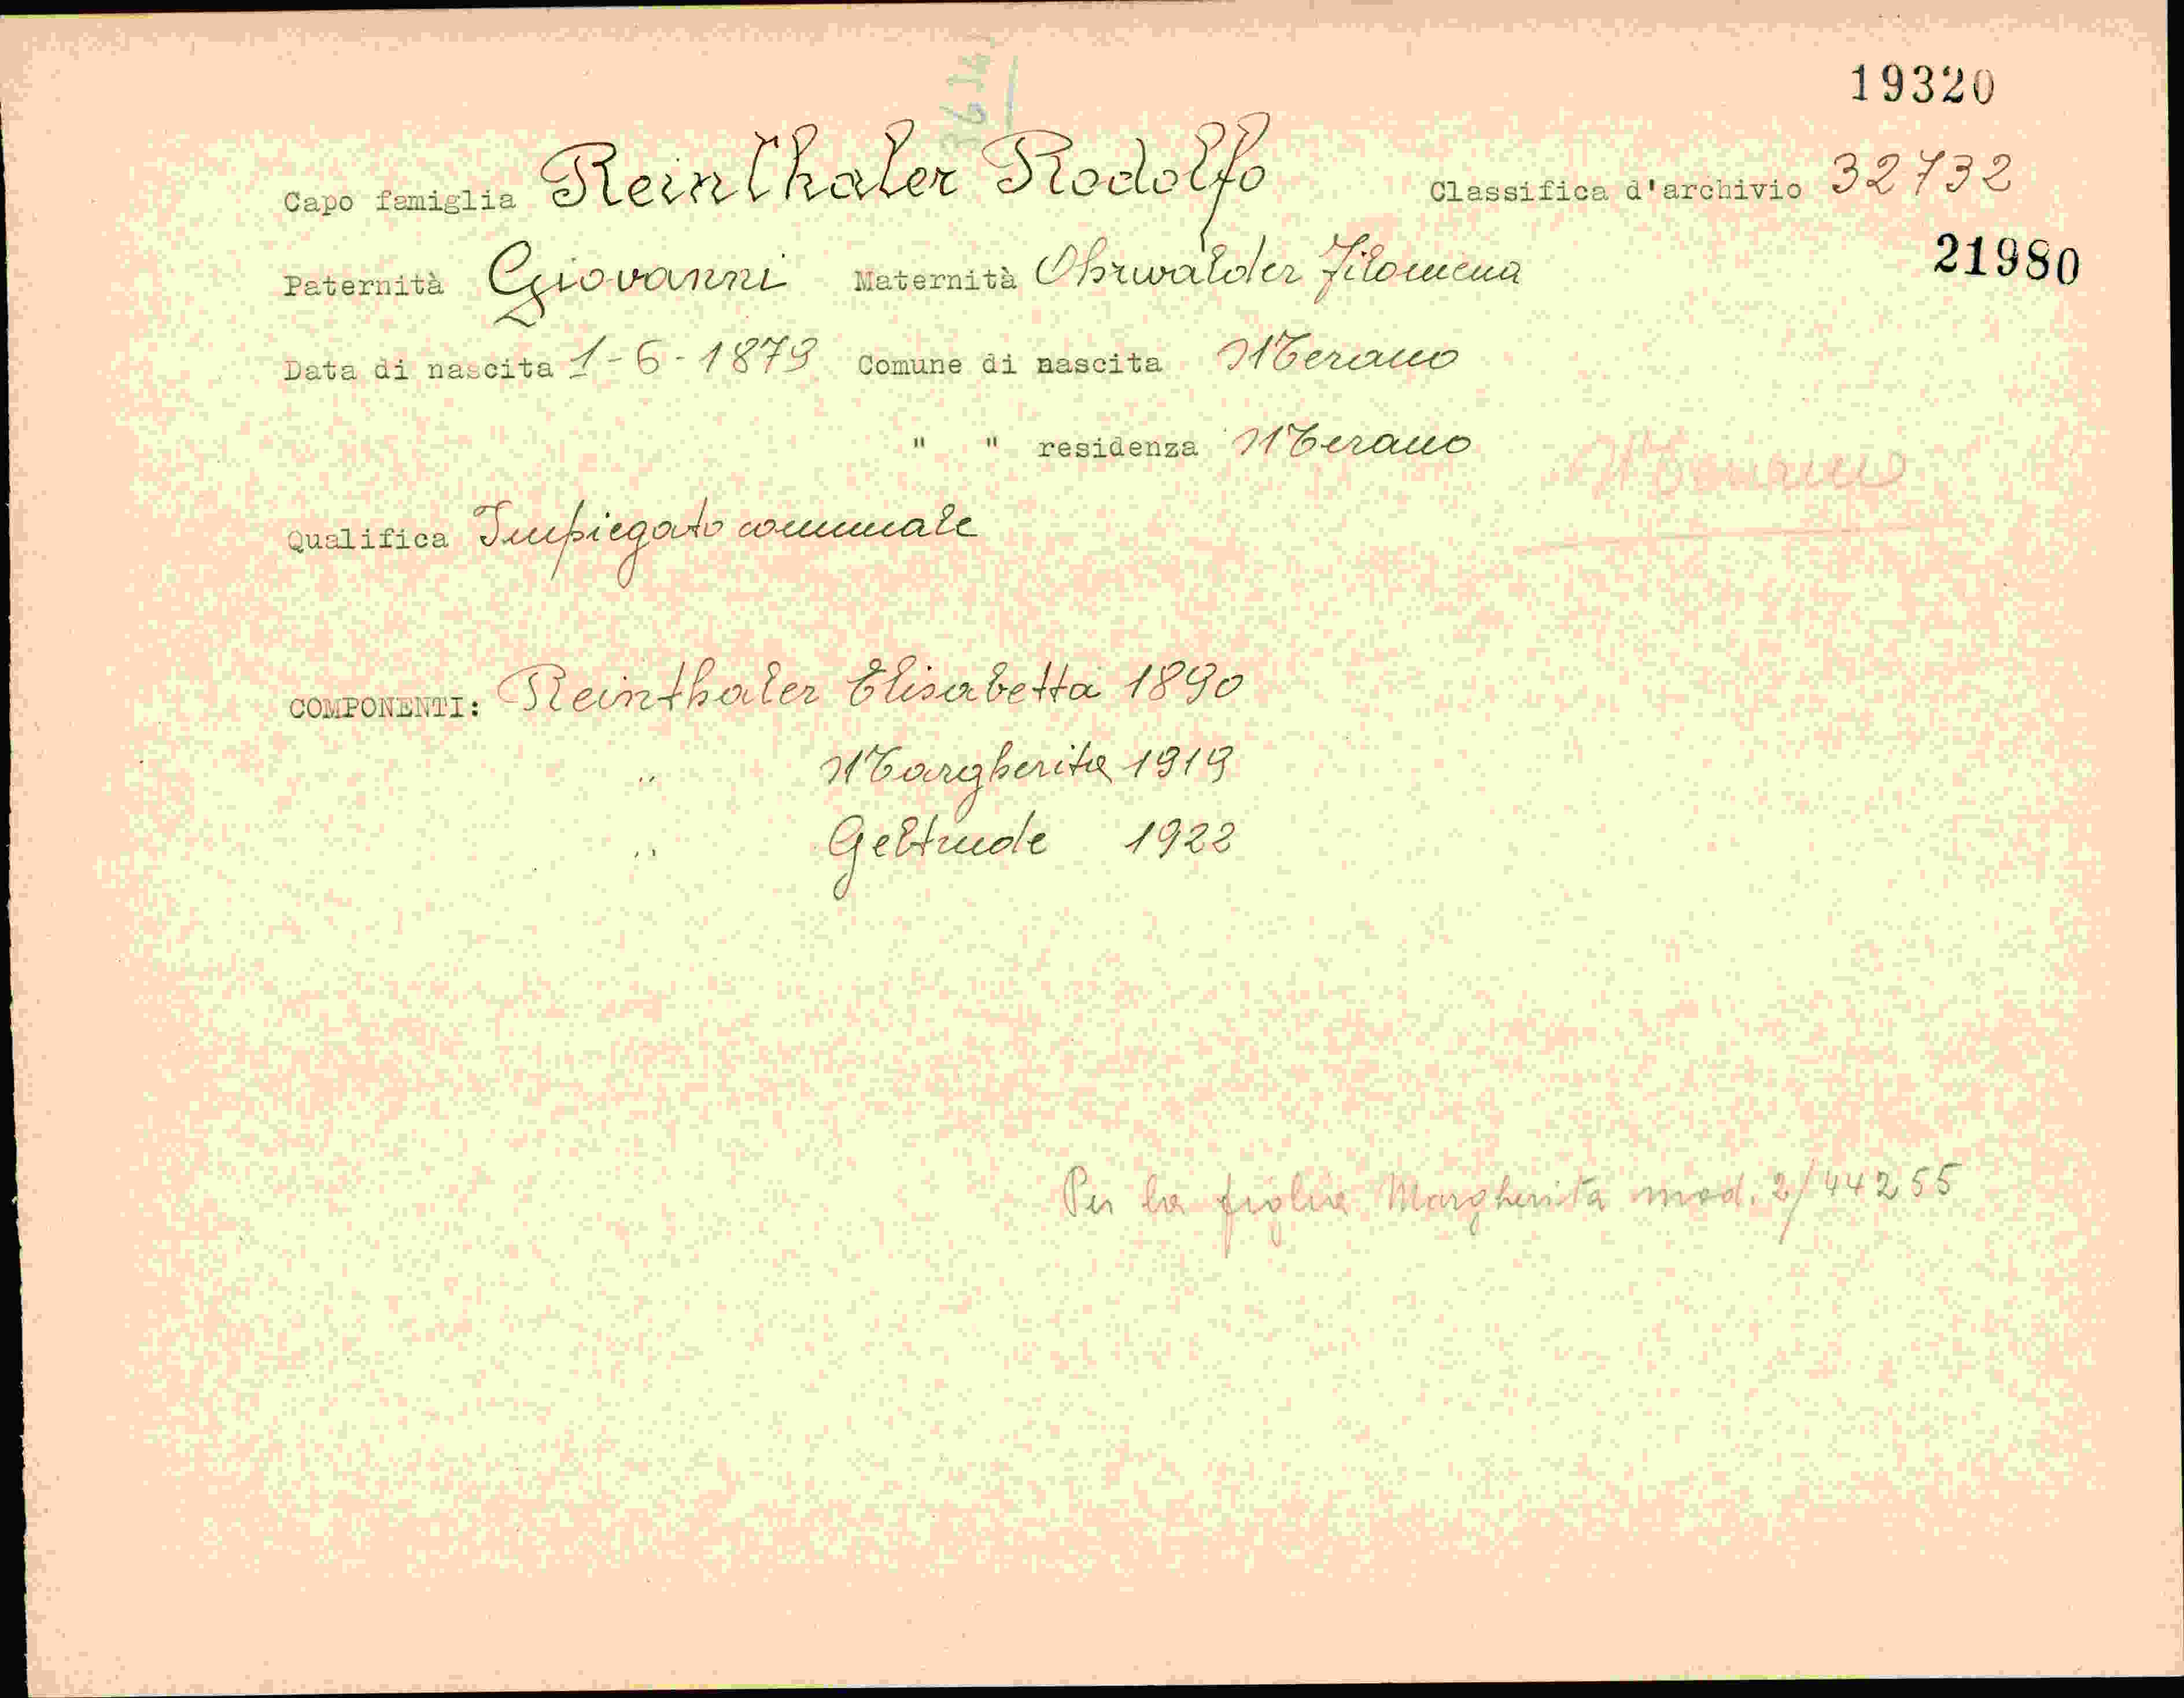 19320
Capo famiglia Reinthaler Rodolfo Classifica d'archivio 32732
21980
Paternità Giovanni Maternità Ohrwalder Filomena
Data di nascita 1-6-1879 Comune di nascita Merano
" " residenza Merano
Merano
Qualifica Impiegato comunale
COMPONENTI: Reinthaler Elisabetta 1890
" Margherita 1919
" Geltrude 1922
Per la figlia Margherita mod. 2/44255